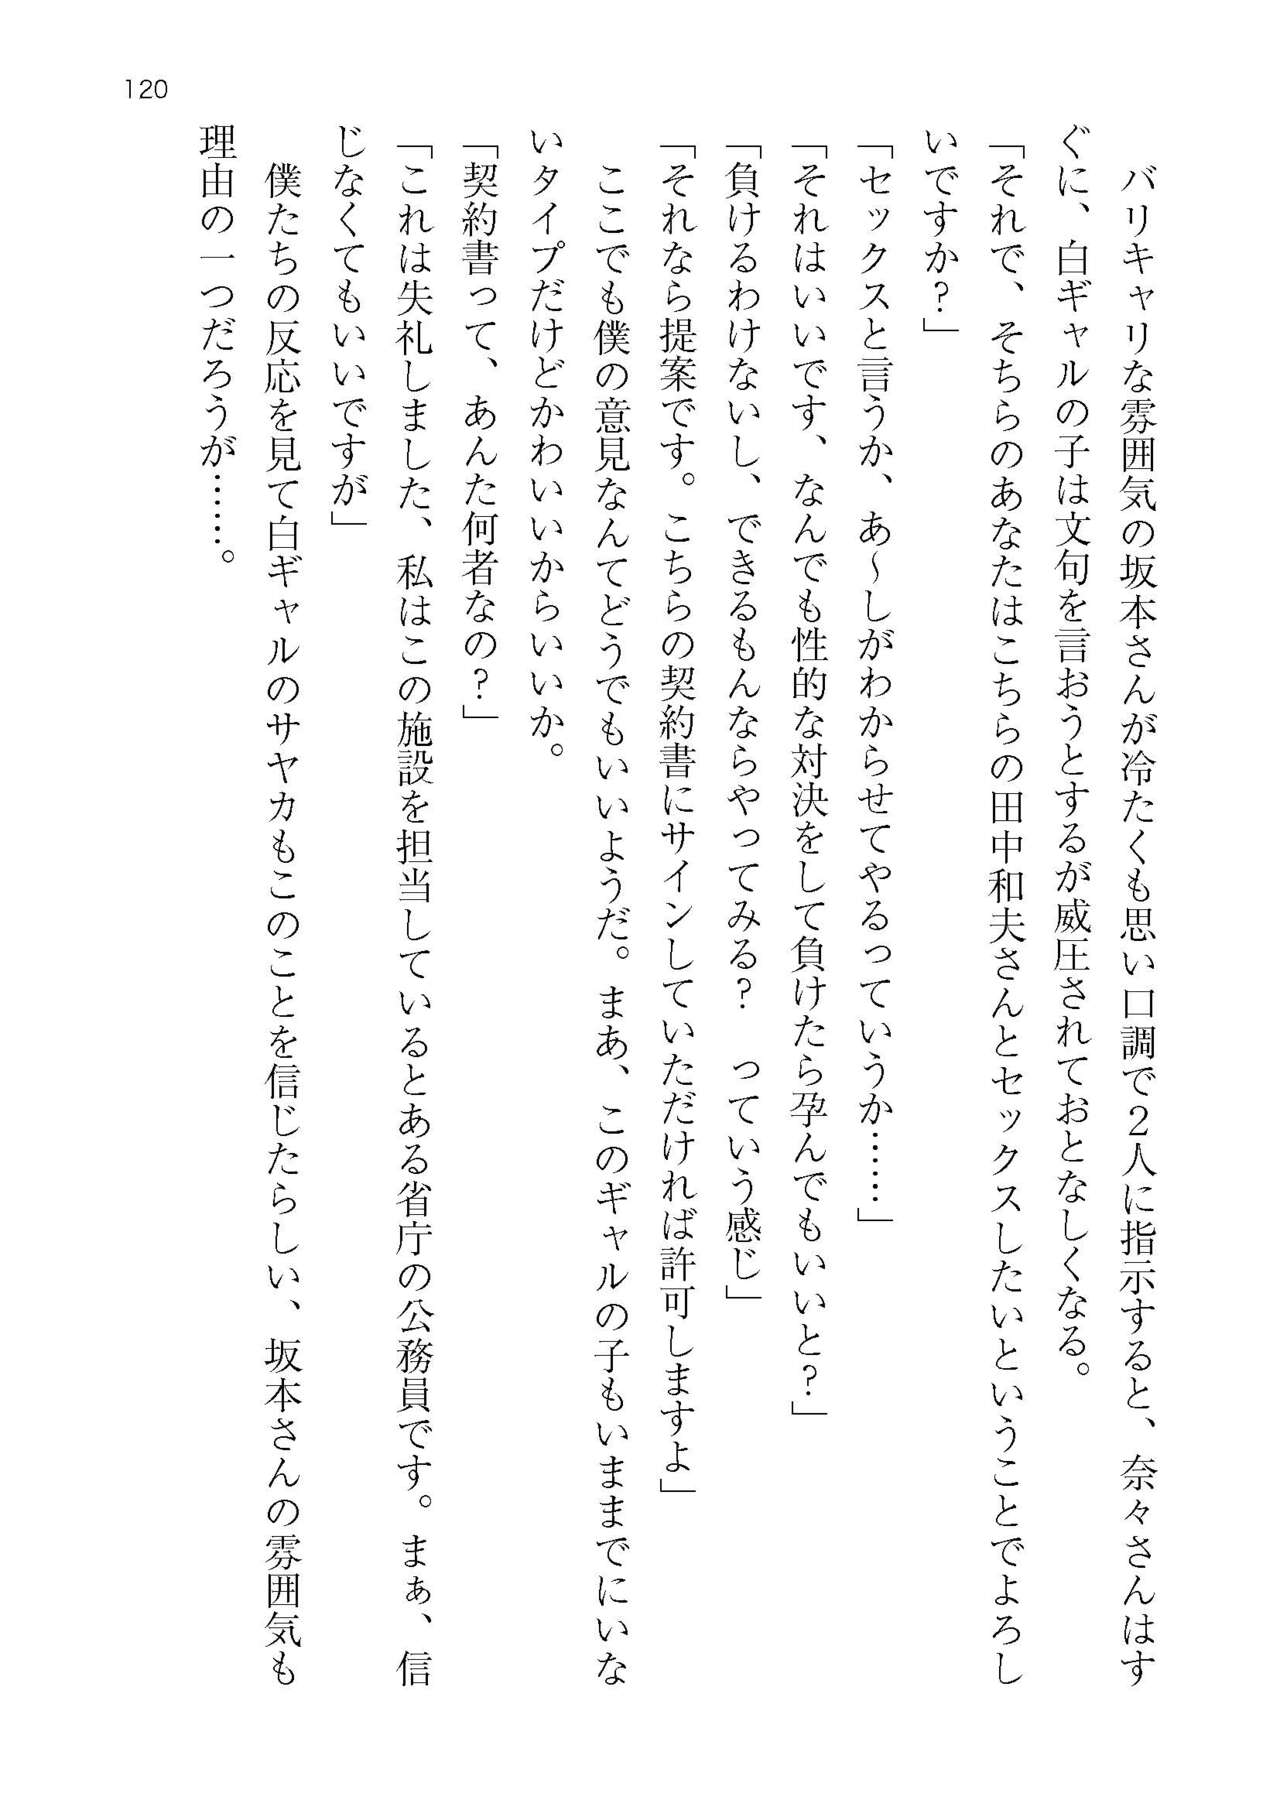 120
バリキャリな雰囲気の坂本さんが冷たくも思い口調で2人に指示すると、奈々さんはす
ぐに、白ギャルの子は文句を言おうとするが威圧されておとなしくなる。
「それで、そちらのあなたはこちらの田中和夫さんとセックスしたいということでよろし
いですか?」
「セックスと言うか、あ～しがわからせてやるっていうか……」
「それはいいです、なんでも性的な対決をして負けたら孕んでもいいと?」
「負けるわけないし、できるもんならやってみる? っていう感じ」
「それなら提案です。こちらの契約書にサインしていただければ許可しますよ」
ここでも僕の意見なんてどうでもいいようだ。まあ、このギャルの子もいままでにいな
いタイプだけどかわいいからいいか。
「契約書って、あんた何者なの?」
「これは失礼しました、私はこの施設を担当しているとある省庁の公務員です。まぁ、信
じなくてもいいですが」
僕たちの反応を見て白ギャルのサヤカもこのことを信じたらしい、坂本さんの雰囲気も
理由の一つだろうが……。